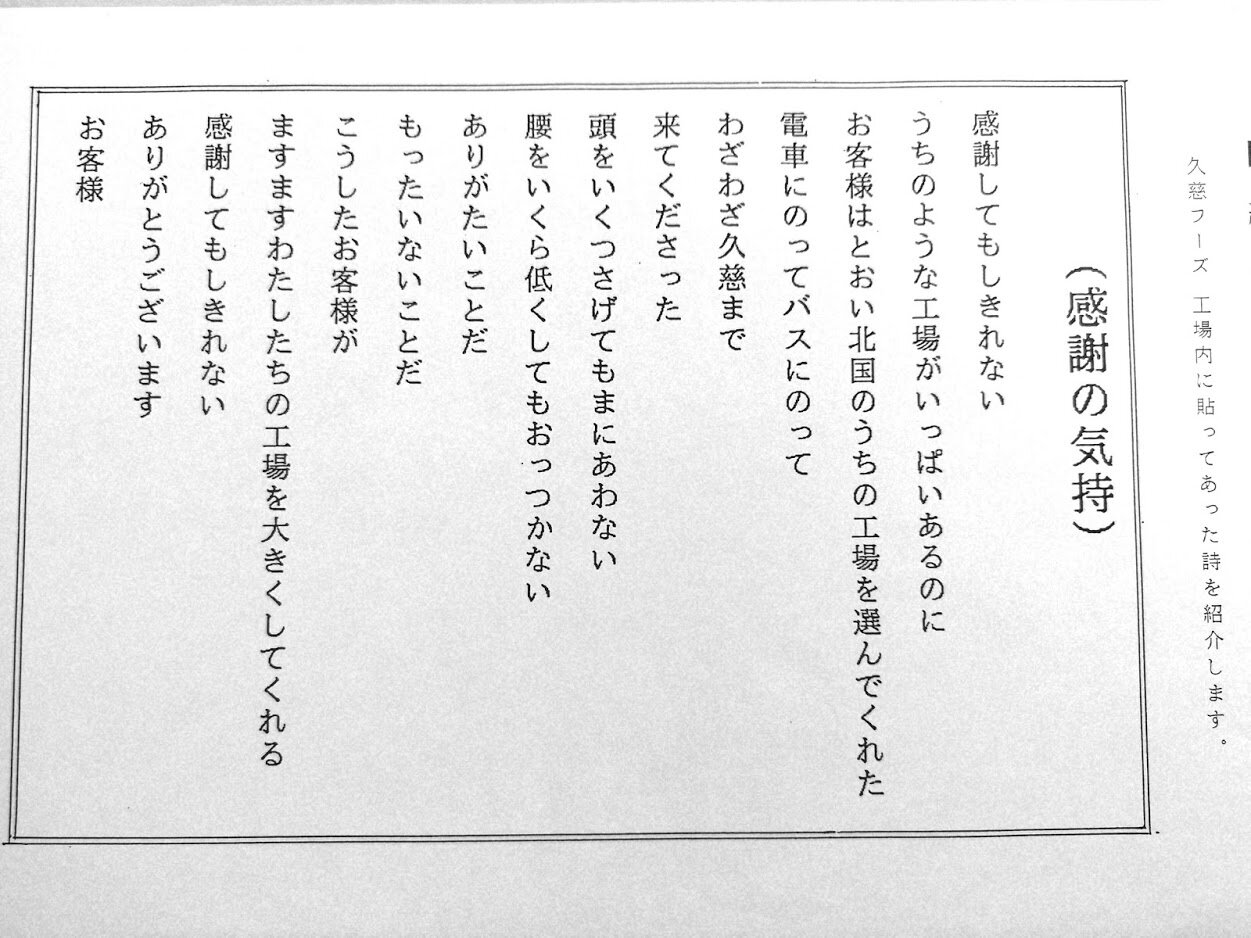 久慈フーズ 工場内に貼ってあった詩を紹介します。
(感謝の気持)
感謝してもしきれない
うちのような工場がいっぱいあるのに
お客様はとおい北国のうちの工場を選んでくれた
電車にのってバスにのって
わざわざ久慈まで
来てくださった
頭をいくつさげてもまにあわない
腰をいくら低くしてもおっつかない
ありがたいことだ
もったいないことだ
こうしたお客様が
ますますわたしたちの工場を大きくしてくれる
感謝してもしきれない
ありがとうございます
お客様